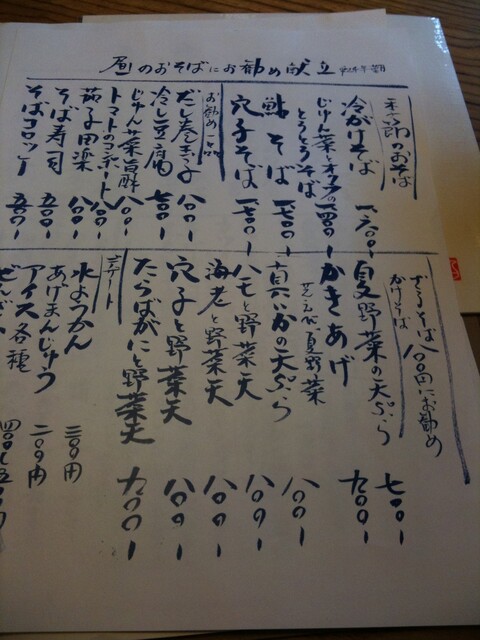 昼のおそばにお勧め献立
季節のおそば
冷がけそば 一、六〇〇ー
じゅん菜とオクラの
とろとろそば 一、四〇〇ー
鮎そば 一、七〇〇ー
穴子そば 一、七〇〇ー
お勧め一品
だし巻玉子 八〇〇ー
冷し豆腐 七〇〇ー
じゅん菜旨酢 八〇〇ー
トマトのコンポート 八〇〇ー
茄子田楽 八〇〇ー
そば寿司 五〇〇ー
そばコロッケ 五〇〇ー
ざるそば
かけそば 八〇〇円にお勧め
夏野菜の天ぷら 七〇〇ー
かきあげ 九〇〇ー
芝えび、夏野菜
真いかの天ぷら 八〇〇ー
ハモと野菜天 八〇〇ー
海老と野菜天 八〇〇ー
穴子と野菜天 八〇〇ー
たらばがにと野菜天 九〇〇ー
デザート
水ようかん 三〇〇円
あげまんじゅう 二〇〇円
アイス各種
ぜんざい